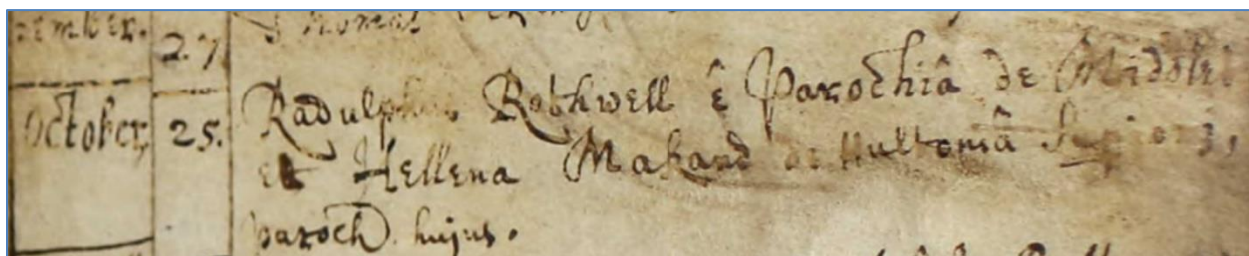 tember. 27 Thomas
October, 25. Radulphus Rothwell ê Parochiâ de Midolel
et Hellena Makand de Hultoniâ Superiori,
paroch. hujus.